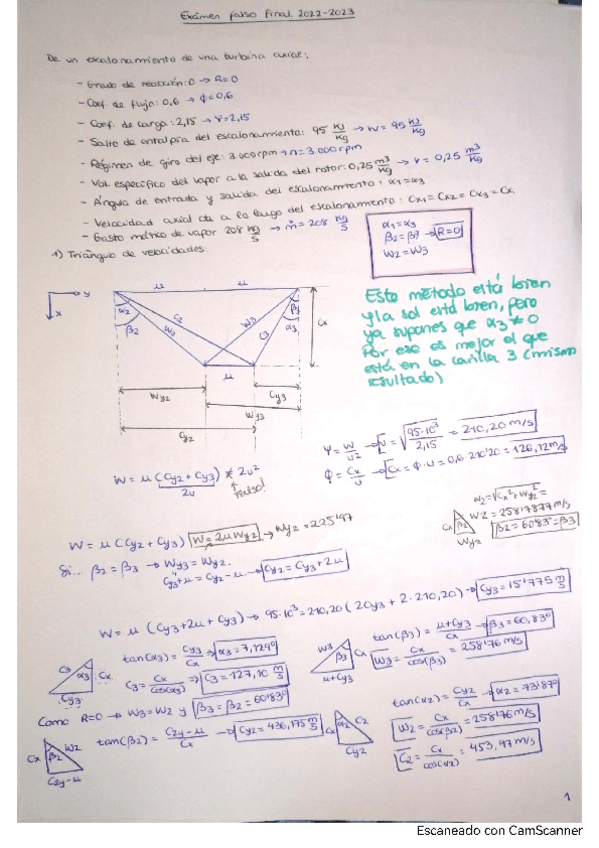 Exámen falso final 2022-2023
De un escalonamiento de una turbina axial:
- Grado de reacción: 0 → R=0
- Coef. de flujo: 0,6 → ϕ=0,6
- Coef. de carga: 2,15 → Ψ=2,15
- Salto de entalpía del escalonamiento: 95 kJ/kg → w = 95 kJ/kg
- Régimen de giro del eje: 3000rpm → n = 3000rpm
- Vol. específico del vapor a la salida del rotor: 0,25 m³/kg → v = 0,25 m³/kg
- Ángulo de entrada y salida del escalonamiento: α1=α3
- Velocidad axial cte a lo largo del escalonamiento: Cx1 = Cx2 = Cx3 = Cx
- Gasto másico de vapor 208 kg/s → ṁ = 208 kg/s
α1=α3
β2=β3 → R=0
W2=W3
1) Triángulo de velocidades:
Este método está bien
y la sol está bien, pero
ya supones que α3≠0
Por eso es mejor el que
está en la carilla 3 (mismo
resultado)
y
x
u
u
α2
β2
C2
W2
W3
C3
β3
α3
Cx
u
Wy2
Cy3
Wy3
Cy2
Ψ = W/u² → u = √(95·10³/2,15) = 210,20 m/s
ϕ = Cx/u → Cx = ϕ·u = 0,6·210'20 = 126,12 m/s
W = u (Cy2 + Cy3) ≠ 2u²
2u
Falso!
W2 = √(Cx² + Wy2²) =
W2 = 258'7877 m/s
β2 = 60'83° = β3
Cx
β2
Wy2
W = u (Cy2 + Cy3) W = 2uWy2 → Wy2 = 225'97
Si... β2 = β3 → Wy3 = Wy2.
Cy3+u = Cy2-u → Cy2 = Cy3 + 2u
W = u (Cy3+2u + Cy3) → 95·10³ = 210,20 (2Cy3 + 2·210,20) → Cy3 = 15'775 m/s
C3
α3
Cx
Cy3
tan(α3) = Cy3/Cx → α3 = 7,129°
C3 = Cx/cos(α3) → C3 = 127,10 m/s
W3
β3
Cx
u+Cy3
tan(β3) = u+Cy3/Cx → β3 = 60,83°
W3 = Cx/cos(β3) = 258'76 m/s
Como R=0 → W3 = W2 y β3 = β2 = 60'83°
Cx
β2
W2
C2y-u
tan(β2) = C2y-u/Cx → Cy2 = 436,175 m/s
Cx
α2
C2
Cy2
tan(α2) = Cy2/Cx → α2 = 73'87°
W2 = Cx/cos(β2) = 258'76 m/s
C2 = Cx/cos(α2) = 453,97 m/s
1
Escaneado con CamScanner